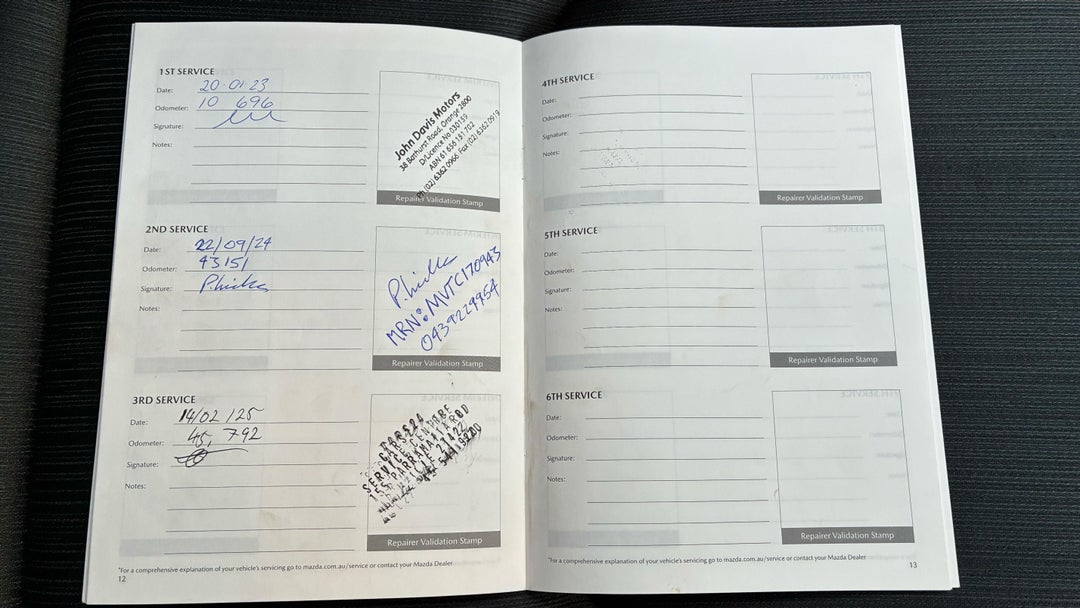 1ST SERVICE
Date: 20-01-23
Odometer: 10 696
Signature:
Notes:
John Davis Motors
38 Bathurst Road, Orange 2800
D/Licence No 030159
ABN 61 656 131 702
Ph (02) 6362 0966 Fax (02) 6362 0919
Repairer Validation Stamp
2ND SERVICE
Date: 22/09/24
Odometer: 43151
Signature:
Notes:
MRN: MVTC170943
0439229954
Repairer Validation Stamp
3RD SERVICE
Date: 14/02/25
Odometer: 45,792
Signature:
Notes:
CARS24
SERVICE CENTRE
Repairer Validation Stamp
*For a comprehensive explanation of your vehicle's servicing go to mazda.com.au/service or contact your Mazda Dealer
12
4TH SERVICE
Date:
Odometer:
Signature:
Notes:
Repairer Validation Stamp
5TH SERVICE
Date:
Odometer:
Signature:
Notes:
Repairer Validation Stamp
6TH SERVICE
Date:
Odometer:
Signature:
Notes:
Repairer Validation Stamp
*For a comprehensive explanation of your vehicle's servicing go to mazda.com.au/service or contact your Mazda Dealer
13